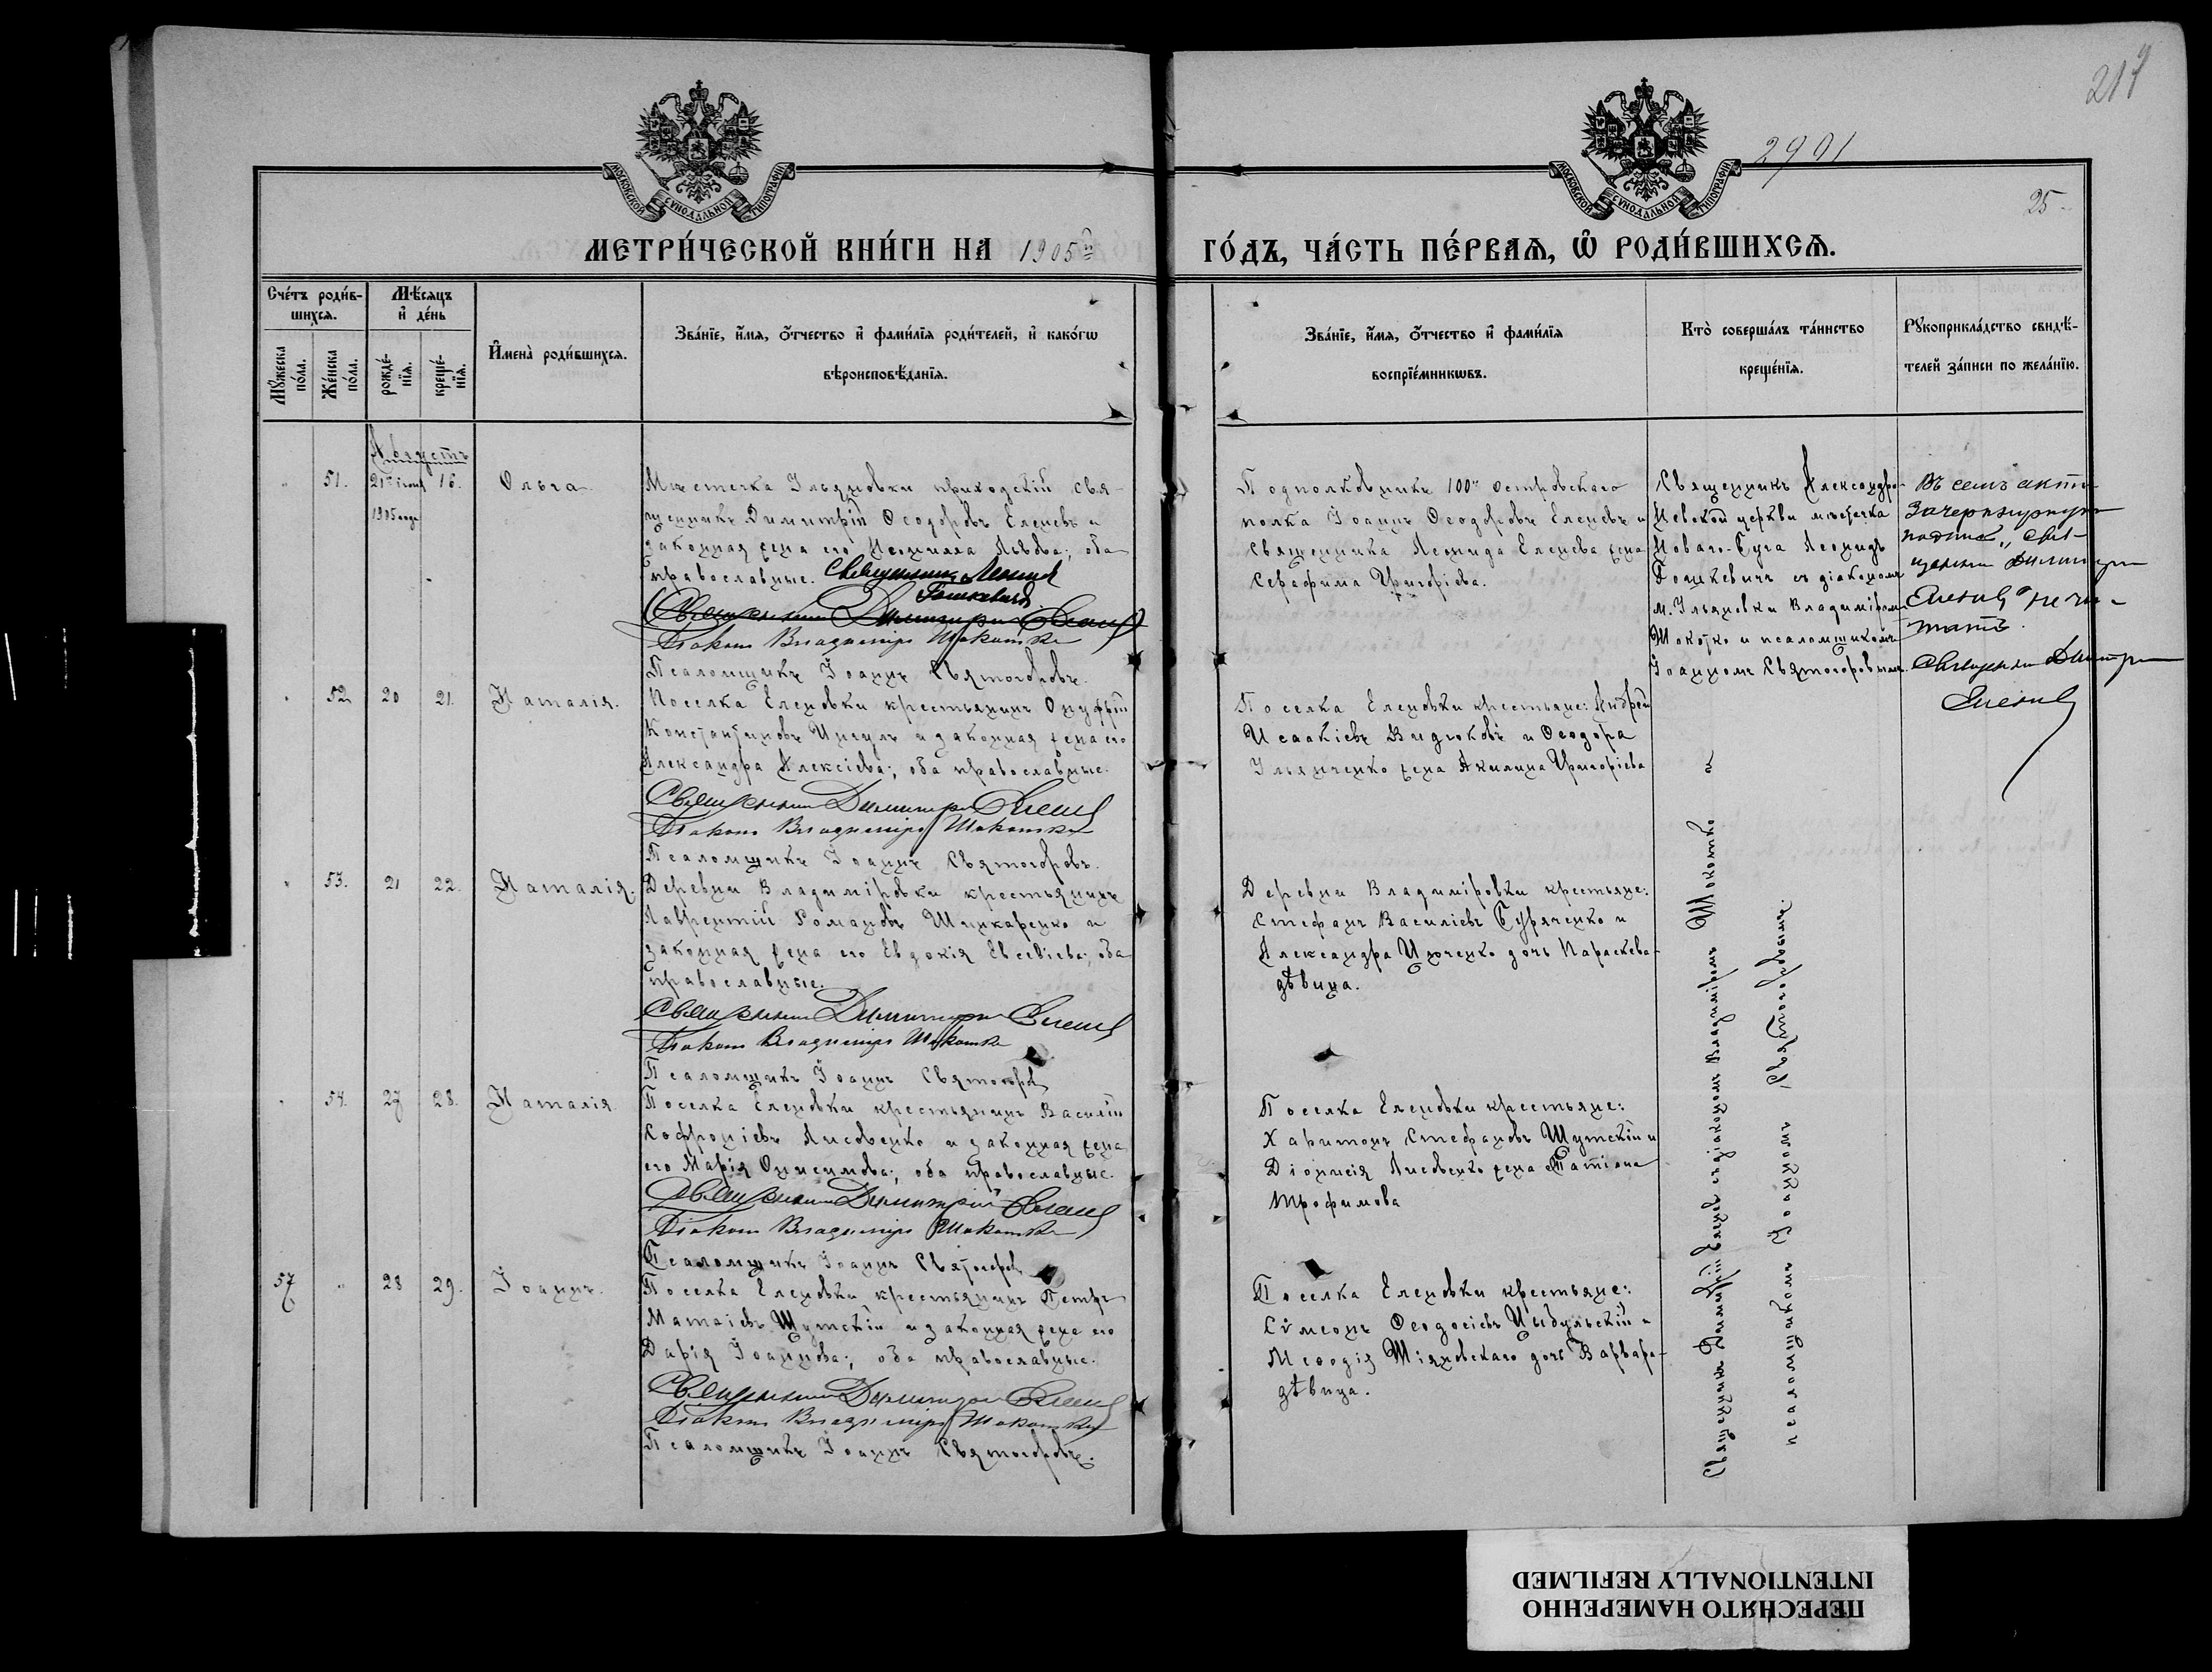 217
2901
25
МОСКОВСКОЙ СѴНОДАЛЬНОЙ ТИПОГРАФІИ
МОСКОВСКОЙ СѴНОДАЛЬНОЙ ТИПОГРАФІИ
МЕТРИ́ЧЕСКОЙ КНИ́ГИ НА 1905й ГО́ДЪ, ЧА́СТЬ ПЕ́РВАѦ, Ѽ РОДИ́ВШИХСѦ.
Сче́тъ роди́в-
шихсѧ.
Мѣ́сѧцъ
и҆ де́нь
Мꙋ́жеска
по́ла.
Же́нска
по́ла.
рожде́-
нїѧ.
креще́-
нїѧ.
И҆мена̀ роди́вшихсѧ.
Зва́нїе, и҆́мѧ, ѻ҆́тчество и҆ фами́лїѧ роди́телей, и҆ како́гѡ
вѣроисповѣ́данїѧ.
Зва́нїе, и҆́мѧ, ѻ҆́тчество и҆ фами́лїѧ
воспрїе́мникѡвъ.
Кто̀ соверша́лъ та́инство
креще́нїѧ.
Рꙋкоприкла́дство свидѣ́-
телей за́писи по жела́нїю.
Августъ
" 51. 21го іюня 16. Ольга.
1905 года
Мѣстечка Ильяновки приходскій свя-
щенникъ Димитрій Ѳеодоровъ Еленевъ и
законная жена его Неонилла Львова; оба
православные. Священникъ Леонид
Гошкевичъ
Священникъ Димитрій Еленев
Діаконъ Владиміръ Шокотко
Псаломщикъ Іоаннъ Святогоровъ.
Подполковникъ 100го Островскаго
полка Іоаннъ Ѳеодоровъ Еленевъ и
священника Леонида Еленева жена
Серафима Григоріева.
Священникъ Александро-
Невской церкви мѣстечка
Новаго-Буга Леонидъ
Гошкевичъ съ діакономъ
м. Ильяновки Владиміромъ
Шокотко и псаломщикомъ
Іоанномъ Святогоровымъ.
Въ семъ акте
зачеркнутую
подпись „Свя-
щенникъ Димитрій
Еленевъ" не чи-
тать.
Священникъ Димитрій
Еленев
" 52. 20 21. Наталія.
Поселка Еленовки крестьянинъ Онуфрій
Константиновъ Цигулъ и законная жена его
Александра Алексіева; оба православные.
Священникъ Димитрій Еленев
Діаконъ Владиміръ Шокотко
Псаломщикъ Іоаннъ Святогоровъ.
Поселка Еленовки крестьяне: Андрей
Исаакіевъ Видюковъ и Ѳеодора
Ильинченко жена Акилина Григоріева
" 53. 21 22. Наталія.
Деревни Владиміровки крестьянинъ
Лаврентій Романовъ Шинкаренко и
законная жена его Евдокія Евсевіева; оба
православные.
Священникъ Димитрій Еленев
Діаконъ Владиміръ Шокотко
Псаломщикъ Іоаннъ Святогоров
Деревни Владиміровки крестьяне:
Стефанъ Василіевъ Буряченко и
Александра Ильченко дочь Параскева-
дѣвица.
" 54. 27 28. Наталія.
Поселка Еленовки крестьянинъ Василій
Софроніевъ Лисовенко и законная жена
его Марія Онисимова; оба православные.
Священникъ Димитрій Еленев
Діаконъ Владиміръ Шокотко
Псаломщикъ Іоаннъ Святогоров
Поселка Еленовки крестьяне:
Харитонъ Стефановъ Шутскій и
Діонисія Лисовенко жена Татіана
Трофимова
57 " 28 29. Іоаннъ.
Поселка Еленовки крестьянинъ Петръ
Матѳіевъ Шутскій и законная жена его
Дарія Іоаннова; оба православные.
Священникъ Димитрій Еленев
Діаконъ Владиміръ Шокотко
Псаломщикъ Іоаннъ Святогоровъ.
Поселка Еленовки крестьяне:
Сѵмеонъ Ѳеодосіевъ Цыбульскій и
Меѳодія Шіяновскаго дочь Варвара-
дѣвица.
Священникъ Димитрій Еленевъ съ діакономъ Владиміромъ Шокотко и
псаломщикомъ Іоанномъ Святогоровымъ.
ПЕРЕСНЯТО НАМЕРЕННО
INTENTIONALLY REFILMED